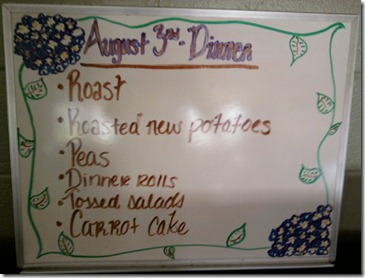 August 3rd - Dinner
• Roast
• Roasted new potatoes
• Peas
• Dinner rolls
• Tossed salads
• Carrot cake